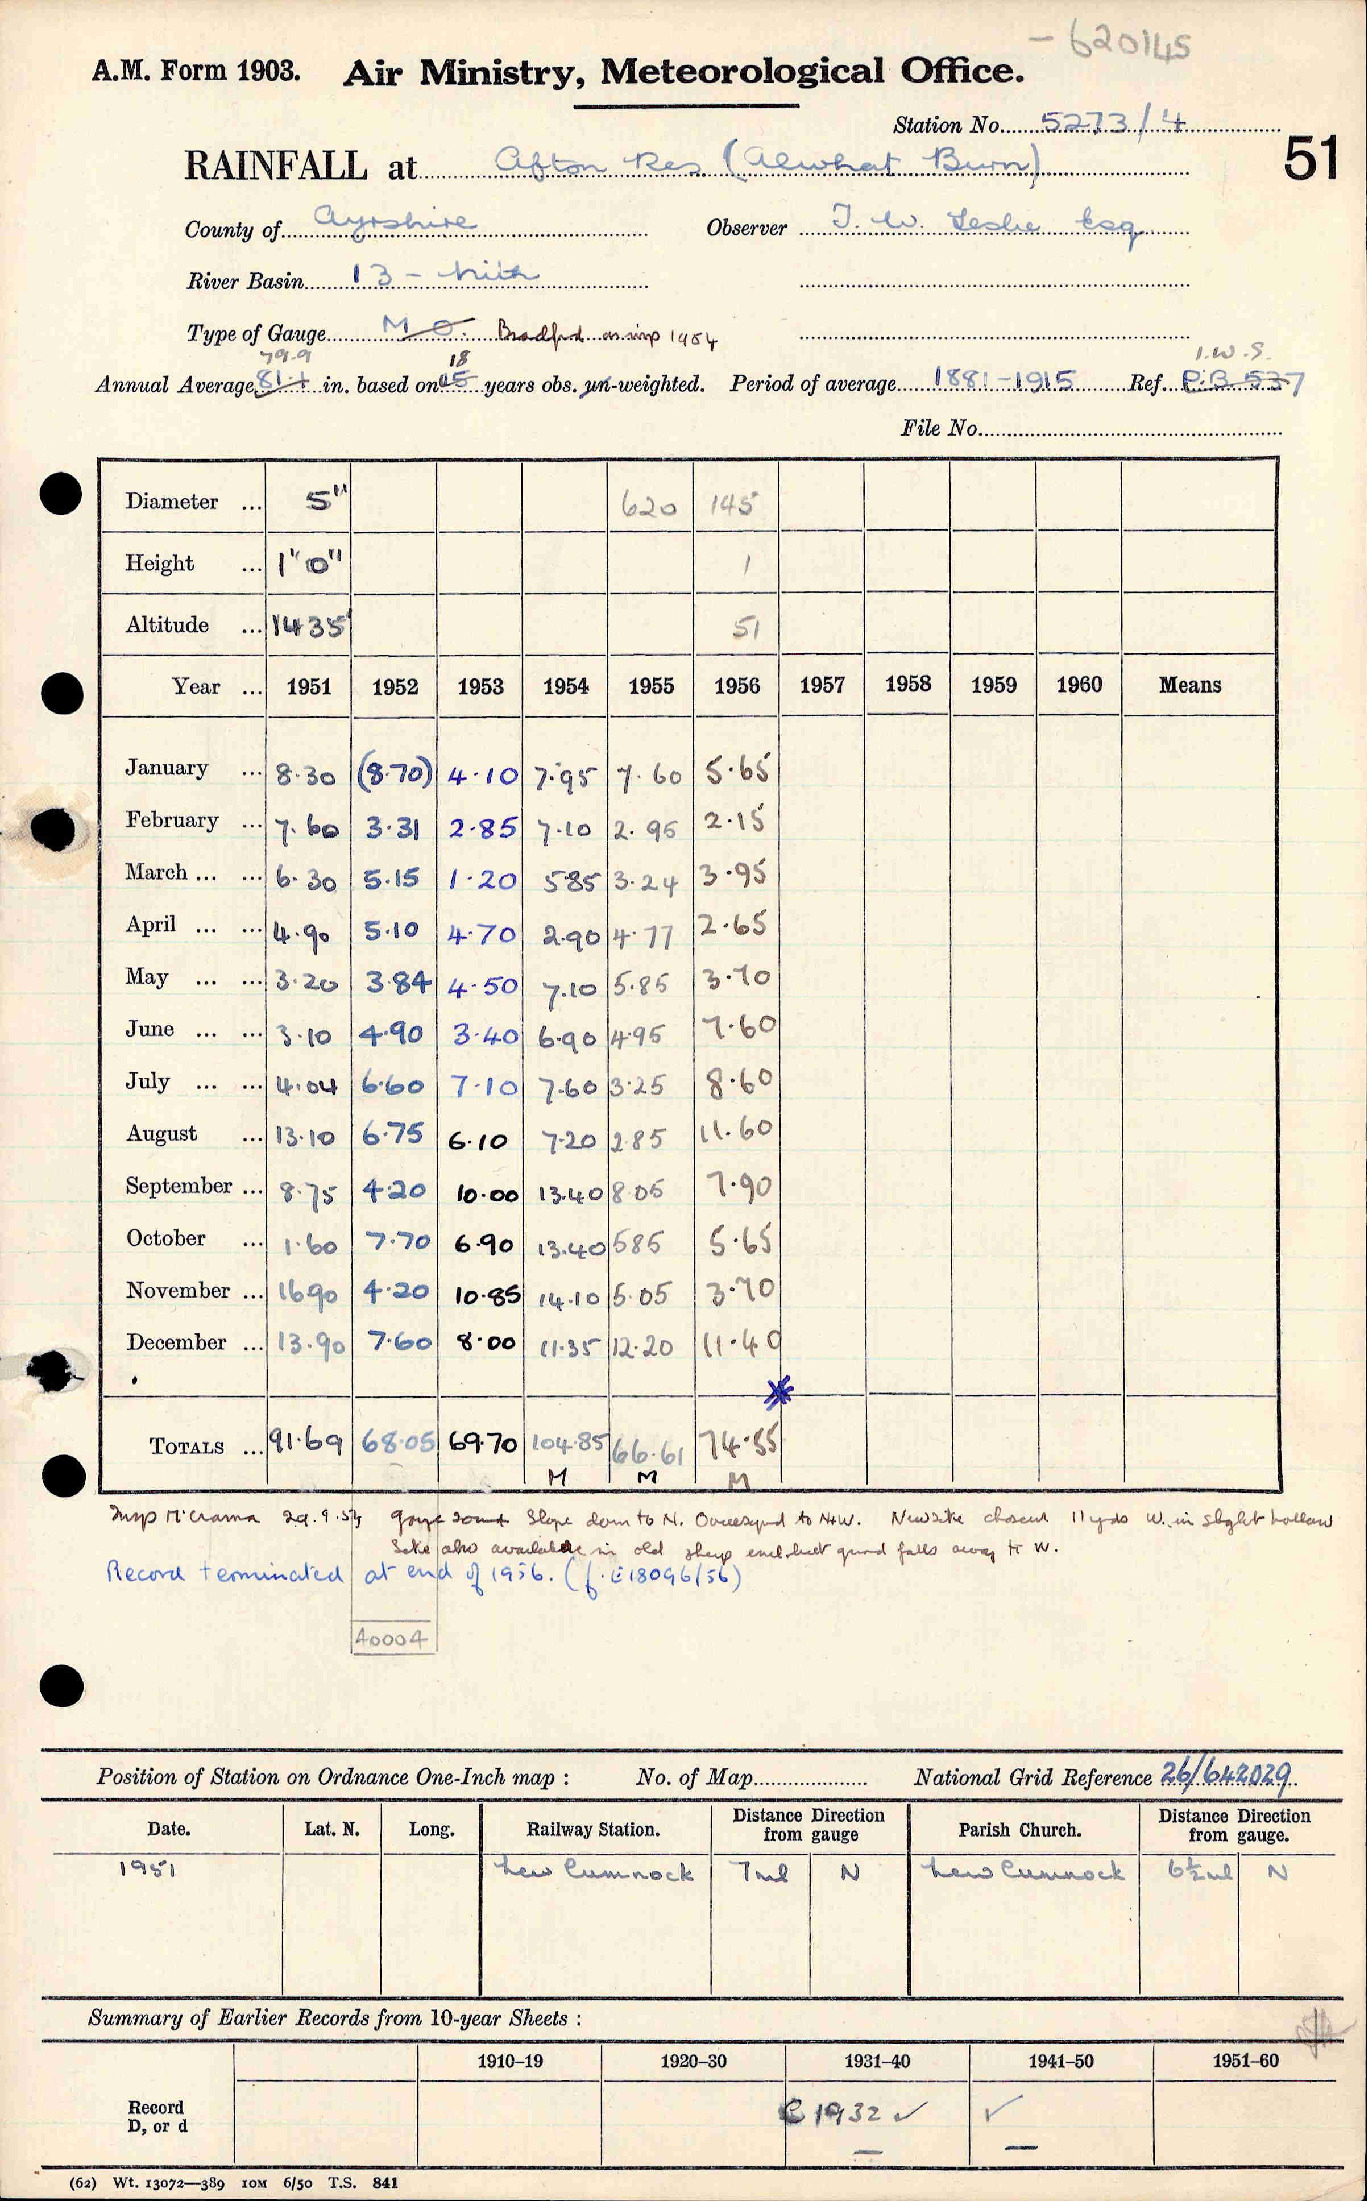 - 620145
A.M. Form 1903. Air Ministry, Meteorological Office.
Station No. 5273/4
RAINFALL at Afton Res (Alwhat Burn) 51
County of Ayrshire Observer J. W. Leslie Esq
River Basin 13 - Nith
Type of Gauge M O. Bradford as insp 1954
79.9 18 I.W.S.
Annual Average 81.1 in. based on 15 years obs. un-weighted. Period of average 1881-1915 Ref. P.B 537
File No.
Diameter ... 5" 620 145
Height ... 1' 0" 1
Altitude ... 1435' 51
Year ... 1951 1952 1953 1954 1955 1956 1957 1958 1959 1960 Means
January ... 8.30 (8.70) 4.10 7.95 7.60 5.65
February ... 7.60 3.31 2.85 7.10 2.95 2.15
March ... ... 6.30 5.15 1.20 585 3.24 3.95
April ... ... 4.90 5.10 4.70 2.90 4.77 2.65
May ... ... 3.20 3.84 4.50 7.10 5.85 3.70
June ... ... 3.10 4.90 3.40 6.90 4.95 7.60
July ... ... 4.04 6.60 7.10 7.60 3.25 8.60
August ... 13.10 6.75 6.10 7.20 2.85 11.60
September ... 8.75 4.20 10.00 13.40 8.05 7.90
October ... 1.60 7.70 6.90 13.40 585 5.65
November ... 1690 4.20 10.85 14.10 5.05 3.70
December ... 13.90 7.60 8.00 11.35 12.20 11.40
TOTALS ... 91.69 68.05 69.70 104.85 66.61 74.55
M M M
Insp 29.9.54 Slope down to N. to N+W. New site chosen 11 yds W. in slight hollow
Site also available in old sheep but falls away to W.
Record terminated at end of 1956. (f.E18096/56)
40004
Position of Station on Ordnance One-Inch map : No. of Map National Grid Reference 26/642029
Date. Lat. N. Long. Railway Station. Distance Direction from gauge Parish Church. Distance Direction from gauge.
1951 New Cumnock 7ml N New Cumnock 6½ml N
Summary of Earlier Records from 10-year Sheets :
1910–19 1920–30 1931–40 1941–50 1951–60
Record D, or d 1932 ✓ ✓
(62) Wt. 13072—389 10M 6/50 T.S. 841